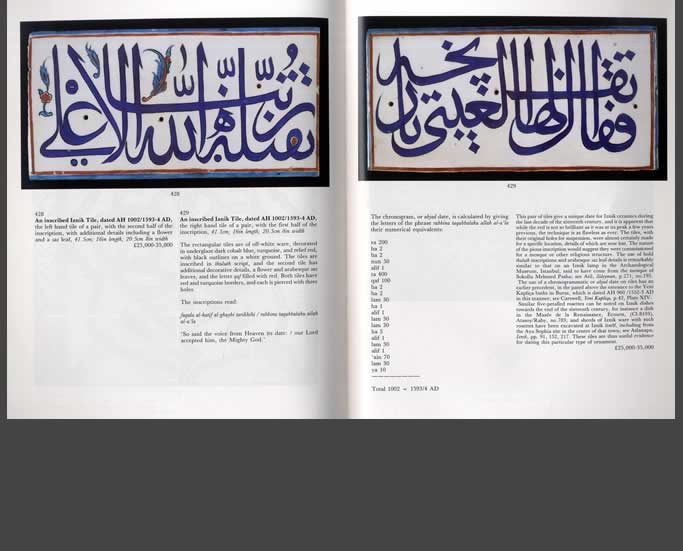 ربنا تقبله الله الاعلى
428
428
An inscribed Iznik Tile, dated AH 1002/1593-4 AD,
the left hand tile of a pair, with the second half of the
inscription, with additional details including a flower
and a saz leaf, 41.5cm; 16in length; 20.5cm 8in width
£25,000-35,000
429
An inscribed Iznik Tile, dated AH 1002/1593-4 AD,
the right hand tile of a pair, with the first half of the
inscription, 41.5cm; 16in length; 20.5cm 8in width
The rectangular tiles are of off-white ware, decorated
in underglaze dark cobalt blue, turquoise, and relief red,
with black outlines on a white ground. The tiles are
inscribed in thuluth script, and the second tile has
additional decorative details, a flower and arabesque saz
leaves, and the letter qaf filled with red. Both tiles have
red and turquoise borders, and each is pierced with three
holes
The inscriptions read:
faqala al-hatif al-ghaybi tarikhihi / rabbina taqabbalahu allah
al-a'la
'So said the voice from Heaven its date: / our Lord
accepted him, the Mighty God.'
فقال الهاتف الغيبى تاريخه
429
The chronogram, or abjad date, is calculated by giving
the letters of the phrase rabbina taqabbalahu allah al-a'la
their numerical equivalents:
ra 200
ba 2
ba 2
nun 50
alif 1
ta 400
qaf 100
ba 2
ba 2
lam 30
ha 5
alif 1
lam 30
lam 30
ha 5
alif 1
lam 30
alif 1
'ain 70
lam 30
ya 10
Total 1002 = 1593/4 AD
This pair of tiles give a unique date for Iznik ceramics during
the last decade of the sixteenth century, and it is apparent that
while the red is not as brilliant as it was at its peak a few years
previous, the technique is as flawless as ever. The tiles, with
their original holes for suspension, were almost certainly made
for a specific location, details of which are now lost. The nature
of the pious inscription would suggest they were commissioned
for a mosque or other religious structure. The use of bold
thuluth inscriptions and arabesque saz leaf details is remarkably
similar to that on an Iznik lamp in the Archaeological
Museum, Istanbul, said to have come from the mosque of
Sokollu Mehmed Pasha; see Atil,
The use of a chronogrammatic or abjad date on tiles has an
earlier precedent, in the panel above the entrance to the Yeni
Kaplıja baths in Bursa, which is dated AH 960 /1552-3 AD
in this manner; see Carswell, Yeni Kaplıja, p.47, Plate XIV.
Similar five-petalled rosettes can be noted on Iznik dishes
towards the end of the sixteenth century, for instance a dish
in the Musée de la Renaissance, Ecouen,
Atasoy/Raby, no.789; and sherds of Iznik ware with such
rosettes have been excavated at Iznik itself, including from
the Aya Sophia site in the centre of that town; see Aslanapa,
Iznik, pp. 91, 152, 217. These tiles are thus useful evidence
for dating this particular type of ornament.
£25,000-35,000